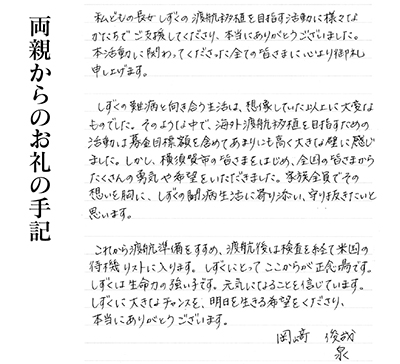 両親からのお礼の手記
私どもの長女しずくの渡航移植を目指す活動に様々な
かたちでご支援してくださり、本当にありがとうございました。
本活動に関わってくださった全ての皆さまに心より御礼
申し上げます。
しずくの難病と向き合う生活は、想像していた以上に大変な
ものでした。そのような中で、海外渡航移植を目指すための
活動は募金目標額を含めてあまりにも高く大きな壁に感じ
ました。しかし、横須賀市の皆さまをはじめ、全国の皆さまから
たくさんの勇気や希望をいただきました。家族全員でその
想いを胸に、しずくの闘病生活に寄り添い、守り抜きたいと
思います。
これから渡航準備をすすめ、渡航後は検査を経て米国の
待機リストに入ります。しずくにとってここからが正念場です。
しずくは生命力の強い子です。元気になることを信じています。
しずくに大きなチャンスを、明日を生きる希望をくださり、
本当にありがとうございます。
岡崎 俊哉
泉